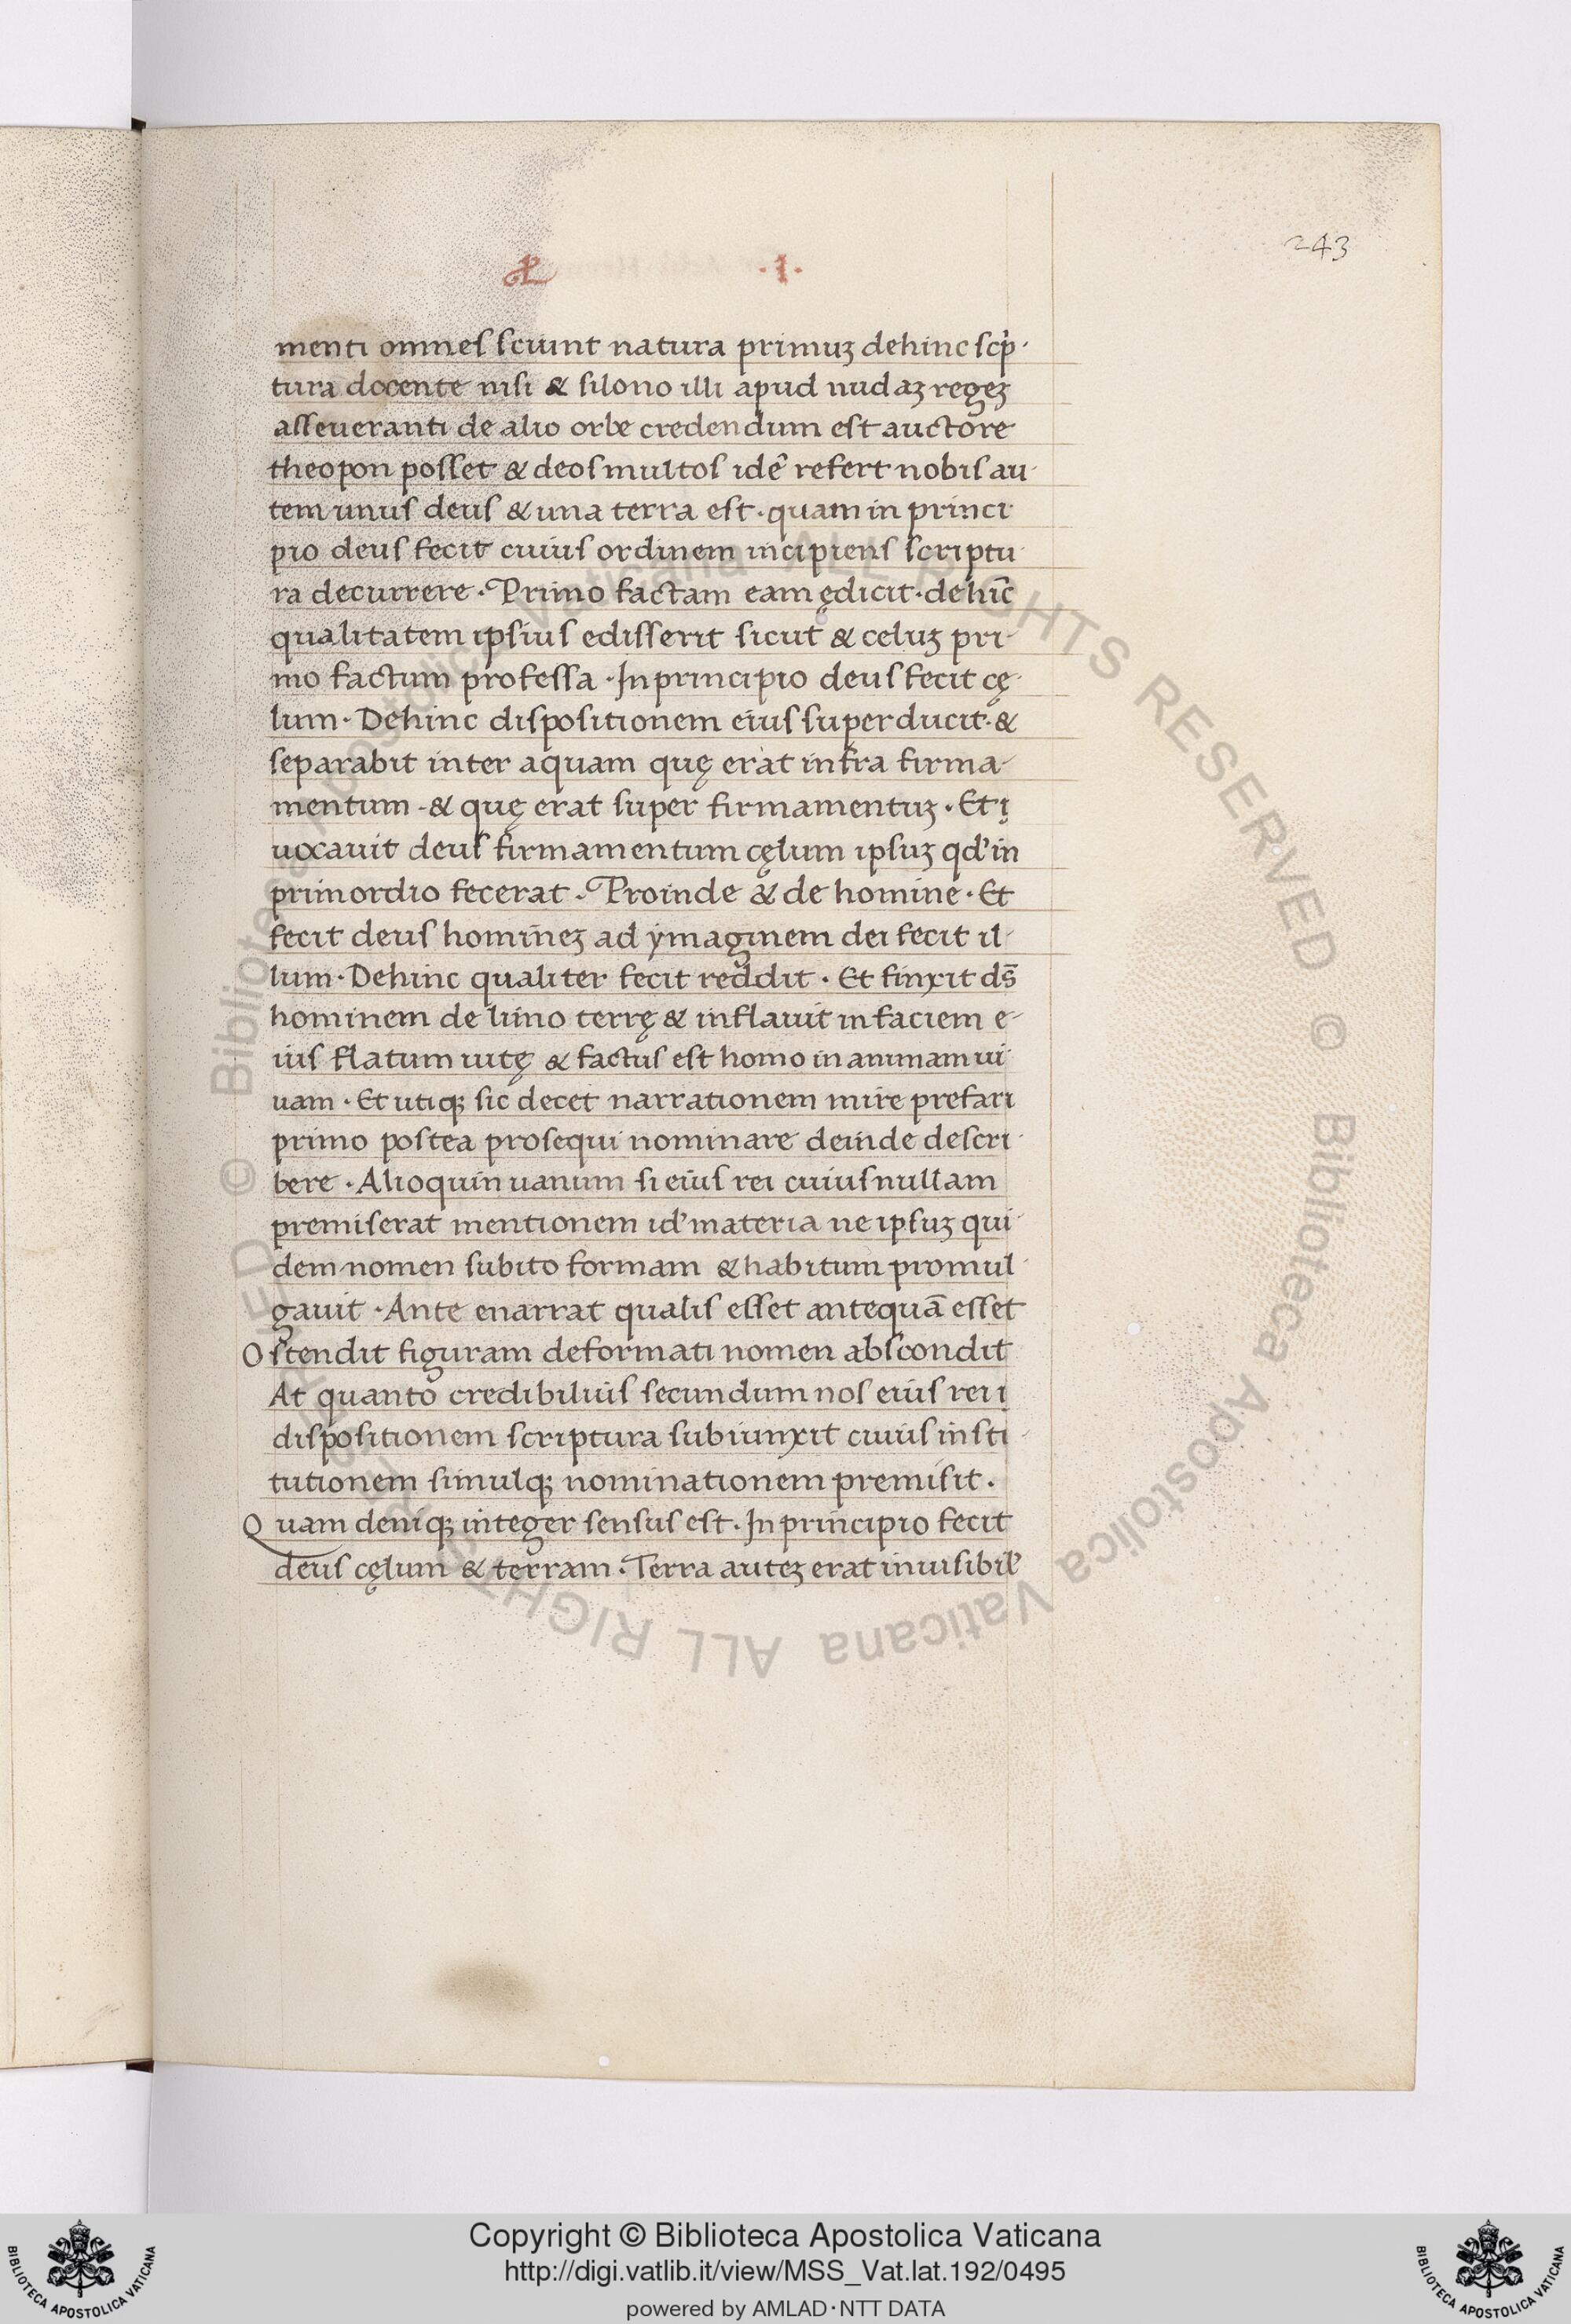 243
·I·
menti omnes sciunt natura primuꝫ dehinc scp̓·
tura docente nisi & silono illi apud nudaꝫ regeꝫ
asseueranti de alio orbe credendum est auctore
theopon posset & deos multos idē refert nobis au-
tem unus deus & una terra est · quam in princi
pio deus fecit cuius ordinem incipiens scriptu-
ra decurrere · Primo factam eam ędicit · dehīc
qualitatem ipsius edisserit sicut & celuꝫ pri-
mo factum professa · In principio deus fecit cę-
lum · Dehinc dispositionem eius superducit · &
separabit inter aquam quę erat infra firma-
mentum · & quę erat super firmamentuꝫ · Et ı̨
uocauit deus firmamentum cęlum ipsuꝫ qd' in
primordio fecerat · Proinde & de homine · Et
fecit deus homineꝫ ad ymaginem dei fecit il-
lum · Dehinc qualiter fecit reddit · Et finxit dS̄
hominem de limo terrę & inflauit in faciem e-
ius flatum uitę & factus est homo in animam ui
uam · Et utiqꝫ sic decet narrationem mire prefari
primo postea prosequi nominare deinde descri-
bere · Alioquin uanum si eius rei cuius nullam
premiserat mentionem id' materia ne ipsuꝫ qui-
dem nomen subito formam & habitum promul-
gauit · Ante enarrat qualis esset antequā esset
Ostendit figuram deformati nomen abscondit
At quanto credibilius secundum nos eius rei ı̨
dispositionem scriptura subiunxit cuius insti-
tutionem simulqꝫ nominationem premisit ·
Quam deniqꝫ integer sensus est · In principio fecit
deus cęlum & terram · Terra auteꝫ erat inuisibil'
© Biblioteca Apostolica Vaticana ALL RIGHTS RESERVED © Biblioteca Apostolica Vaticana ALL RIGHTS RESERVED
Copyright © Biblioteca Apostolica Vaticana
http://digi.vatlib.it/view/MSS_Vat.lat.192/0495
powered by AMLAD·NTT DATA
BIBLIOTECA APOSTOLICA VATICANA
BIBLIOTECA APOSTOLICA VATICANA